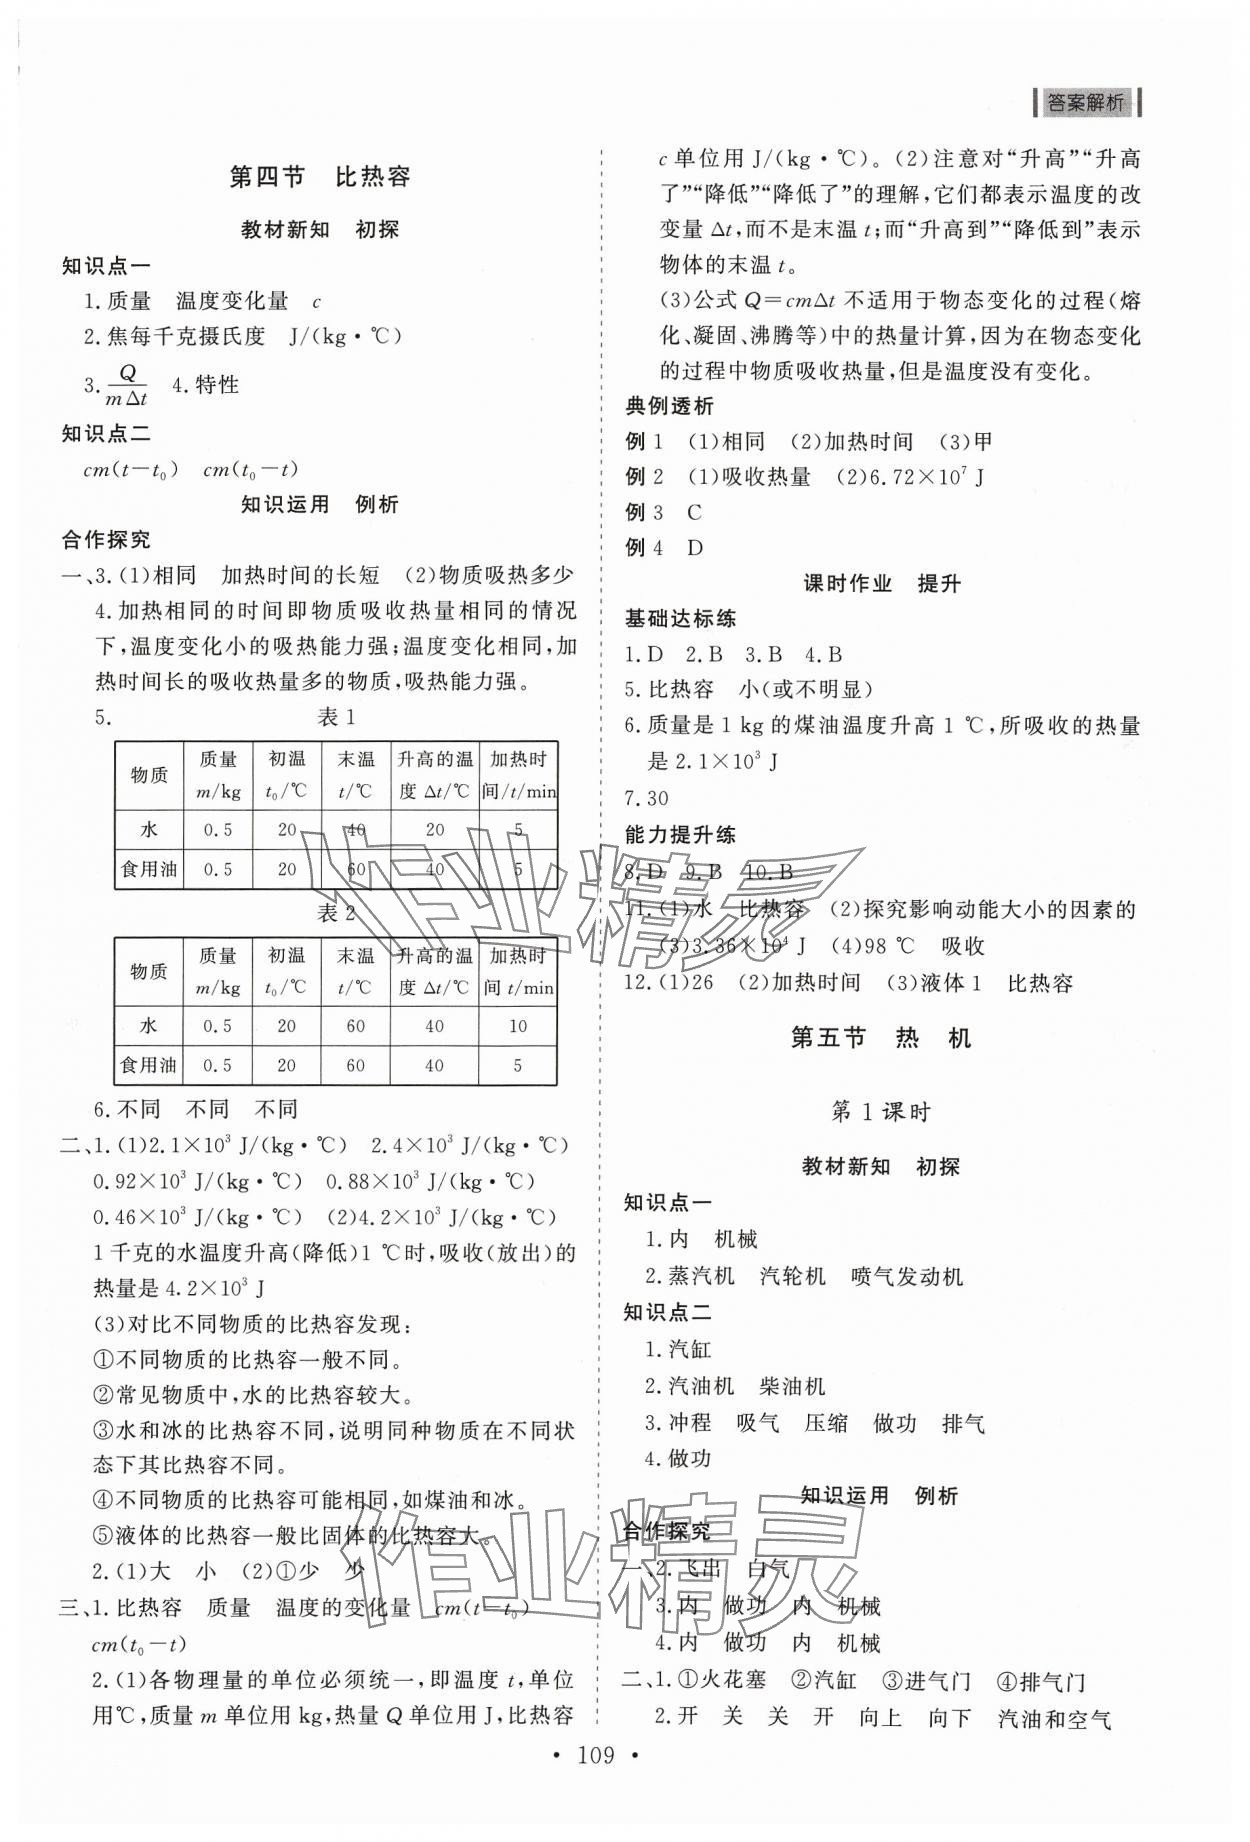 答案解析
第四节 比热容
教材新知 初探
知识点一
1.质量 温度变化量 c
2.焦每千克摄氏度 J/(kg·℃)
3.Q/(mΔt) 4.特性
知识点二
cm(t-t₀) cm(t₀-t)
知识运用 例析
合作探究
一、3.(1)相同 加热时间的长短 (2)物质吸热多少
4.加热相同的时间即物质吸收热量相同的情况
下,温度变化小的吸热能力强;温度变化相同,加
热时间长的吸收热量多的物质,吸热能力强。
5. 表1
物质 质量m/kg 初温t₀/℃ 末温t/℃ 升高的温度Δt/℃ 加热时间/t/min
水 0.5 20 40 20 5
食用油 0.5 20 60 40 5
表2
物质 质量m/kg 初温t₀/℃ 末温t/℃ 升高的温度Δt/℃ 加热时间t/min
水 0.5 20 60 40 10
食用油 0.5 20 60 40 5
6.不同 不同 不同
二、1.(1)2.1×10³ J/(kg·℃) 2.4×10³ J/(kg·℃)
0.92×10³ J/(kg·℃) 0.88×10³ J/(kg·℃)
0.46×10³ J/(kg·℃) (2)4.2×10³ J/(kg·℃)
1千克的水温度升高(降低)1 ℃时,吸收(放出)的
热量是4.2×10³ J
(3)对比不同物质的比热容发现:
①不同物质的比热容一般不同。
②常见物质中,水的比热容较大。
③水和冰的比热容不同,说明同种物质在不同状
态下其比热容不同。
④不同物质的比热容可能相同,如煤油和冰。
⑤液体的比热容一般比固体的比热容大。
2.(1)大 小 (2)①少 少
三、1.比热容 质量 温度的变化量 cm(t-t₀)
cm(t₀-t)
2.(1)各物理量的单位必须统一,即温度t,单位
用℃,质量m单位用kg,热量Q单位用J,比热容
c单位用J/(kg·℃)。(2)注意对“升高”“升高
了”“降低”“降低了”的理解,它们都表示温度的改
变量Δt,而不是末温t;而“升高到”“降低到”表示
物体的末温t。
(3)公式Q=cmΔt不适用于物态变化的过程(熔
化、凝固、沸腾等)中的热量计算,因为在物态变化
的过程中物质吸收热量,但是温度没有变化。
典例透析
例1 (1)相同 (2)加热时间 (3)甲
例2 (1)吸收热量 (2)6.72×10⁷ J
例3 C
例4 D
课时作业 提升
基础达标练
1.D 2.B 3.B 4.B
5.比热容 小(或不明显)
6.质量是1 kg的煤油温度升高1 ℃,所吸收的热量
是2.1×10³ J
7.30
能力提升练
8.D 9.B 10.B
11.(1)水 比热容 (2)探究影响动能大小的因素的
(3)3.36×10⁴ J (4)98 ℃ 吸收
12.(1)26 (2)加热时间 (3)液体1 比热容
第五节 热 机
第1课时
教材新知 初探
知识点一
1.内 机械
2.蒸汽机 汽轮机 喷气发动机
知识点二
1.汽缸
2.汽油机 柴油机
3.冲程 吸气 压缩 做功 排气
4.做功
知识运用 例析
合作探究
一、2.飞出 白气
3.内 做功 内 机械
4.内 做功 内 机械
二、1.①火花塞 ②汽缸 ③进气门 ④排气门
2.开 关 关 开 向上 向下 汽油和空气
·109·
作业精灵
作业精灵